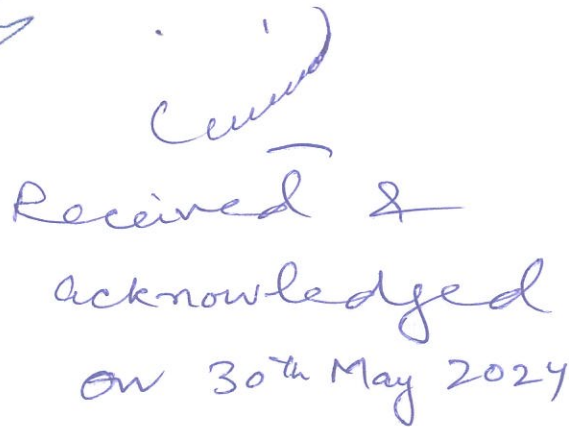 Received &
acknowledged
on 30th May 2024